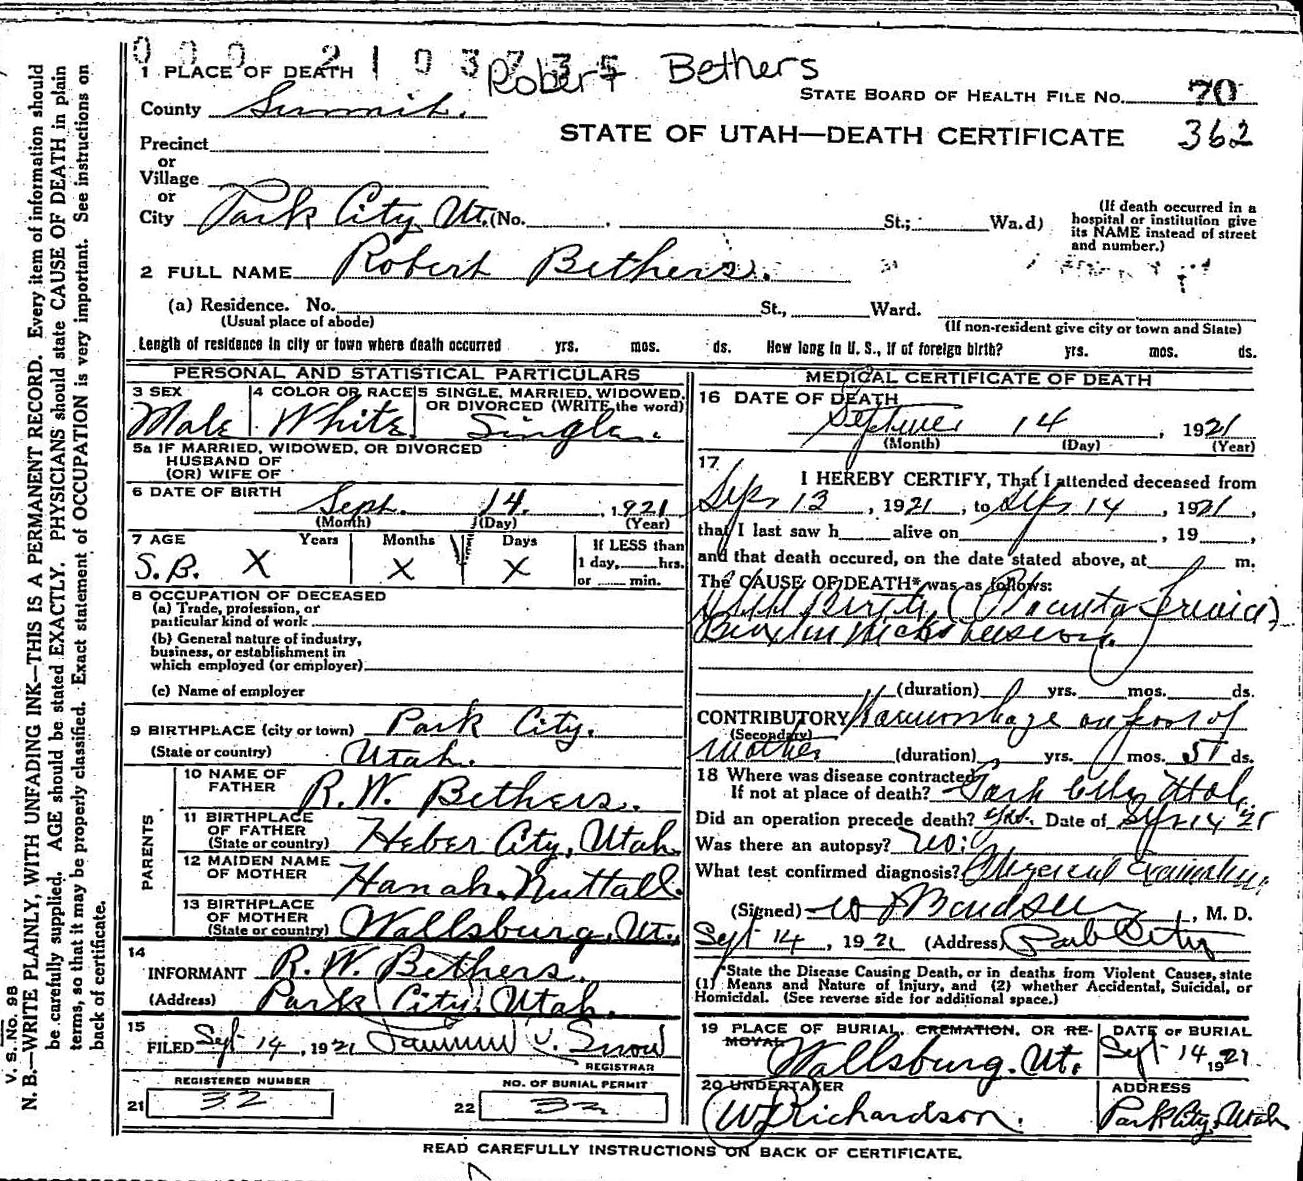 0 0 0 2 1 0 3 7 3 5
Robert Bethers
1 PLACE OF DEATH
STATE BOARD OF HEALTH FILE NO. 70
County Summit.
STATE OF UTAH—DEATH CERTIFICATE 362
Precinct
or
Village
or
City Park City, Ut. (No. St.; Wa.d)
(If death occurred in a hospital or institution give its NAME instead of street and number.)
2 FULL NAME Robert Bethers.
(a) Residence. No. St., Ward.
(Usual place of abode) (If non-resident give city or town and State)
Length of residence in city or town where death occurred yrs. mos. ds. How long in U. S., if of foreign birth? yrs. mos. ds.
PERSONAL AND STATISTICAL PARTICULARS
3 SEX Male
4 COLOR OR RACE White.
5 SINGLE, MARRIED, WIDOWED, OR DIVORCED (WRITE the word) Single.
5a IF MARRIED, WIDOWED, OR DIVORCED
HUSBAND OF
(OR) WIFE OF
6 DATE OF BIRTH Sept. 14. , 1921
(Month) (Day) (Year)
7 AGE Years Months Days If LESS than
S.B. X X X 1 day, hrs.
or min.
8 OCCUPATION OF DECEASED
(a) Trade, profession, or
particular kind of work
(b) General nature of industry,
business, or establishment in
which employed (or employer)
(c) Name of employer
9 BIRTHPLACE (city or town) Park City.
(State or country) Utah.
PARENTS
10 NAME OF FATHER R. W. Bethers.
11 BIRTHPLACE OF FATHER (State or country) Heber City, Utah.
12 MAIDEN NAME OF MOTHER Hanah Nuttall.
13 BIRTHPLACE OF MOTHER (State or country) Wallsburg, Ut.
14
INFORMANT R. W. Bethers.
(Address) Park City, Utah.
15
FILED Sept 14, 1921 Snow
REGISTRAR
REGISTERED NUMBER NO. OF BURIAL PERMIT
21 32 22 32
MEDICAL CERTIFICATE OF DEATH
16 DATE OF DEATH
14 , 1921
(Month) (Day) (Year)
17
I HEREBY CERTIFY, That I attended deceased from
Sep 13 , 1921 , to Sep 14 , 1921 ,
that I last saw h alive on , 19 ,
and that death occured, on the date stated above, at m.
The CAUSE OF DEATH* was as follows:
Still Birth (Placenta Previa)
(duration) yrs. mos. ds.
CONTRIBUTORY Haemorhage on part of
(Secondary)
mother (duration) yrs. mos. ds.
18 Where was disease contracted
If not at place of death? Park City Utah.
Did an operation precede death? yes. Date of Sep 14 21
Was there an autopsy? no.
What test confirmed diagnosis? Physical
(Signed) , M. D.
Sept 14 , 1921 (Address) Park City
*State the Disease Causing Death, or in deaths from Violent Causes, state
(1) Means and Nature of Injury, and (2) whether Accidental, Suicidal, or
Homicidal. (See reverse side for additional space.)
19 PLACE OF BURIAL, CREMATION, OR REMOVAL
Wallsburg. Ut.
DATE OF BURIAL
Sept 14, 1921
20 UNDERTAKER
W Richardson.
ADDRESS
Park City, Utah
READ CAREFULLY INSTRUCTIONS ON BACK OF CERTIFICATE.
V. S. No. 98
N. B.—WRITE PLAINLY, WITH UNFADING INK—THIS IS A PERMANENT RECORD. Every item of information should
be carefully supplied. AGE should be stated EXACTLY. PHYSICIANS should state CAUSE OF DEATH in plain
terms, so that it may be properly classified. Exact statement of OCCUPATION is very important. See instructions on
back of certificate.